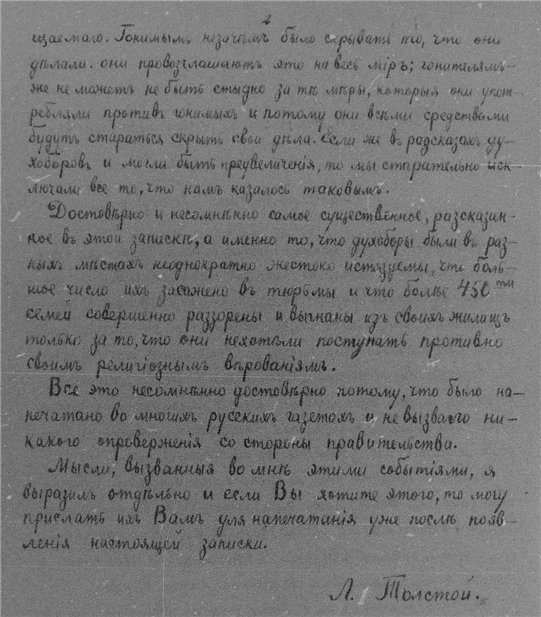 2
щаемаго. Гонимымъ незачѣмъ было скрывать то, что они
дѣлали. они провозглашаютъ это на весь міръ; гонителямъ-
же не можетъ не быть стыдно за тѣ мѣры, которыя они упот-
ребляли противъ гонимыхъ и потому они всѣми средствами
будутъ стараться скрыть свои дѣла. Если же в разсказахъ ду-
хоборовъ и могли быть преувеличенія, то мы старательно иск-
лючали все то, что намъ казалось таковымъ.
Достовѣрно и несомнѣнно самое существенное, разсказан-
ное въ этой запискѣ, а именно то, что духоборы были въ раз-
ныхъ мѣстахъ неоднократно жестоко истязуемы, что боль-
шое число ихъ засажено въ тюрьмы и что болѣе 450ти
семей совершенно раззорены и выгнаны изъ своихъ жилищъ
только за то, что они нехотѣли поступать противно
своимъ религіознымъ вѣрованіямъ.
Все это несомнѣнно достовѣрно потому, что было на-
печатано во многихъ русскихъ газетохъ и не вызвало ни-
какого опроверженія со стороны правительства.
Мысли, вызванныя во мнѣ этими событіями, я
выразилъ отдѣльно и если Вы хотите этого, то могу
прислать ихъ Вамъ для напечатанія уже послѣ появ-
ленія настоящей записки.
Л. Толстой.